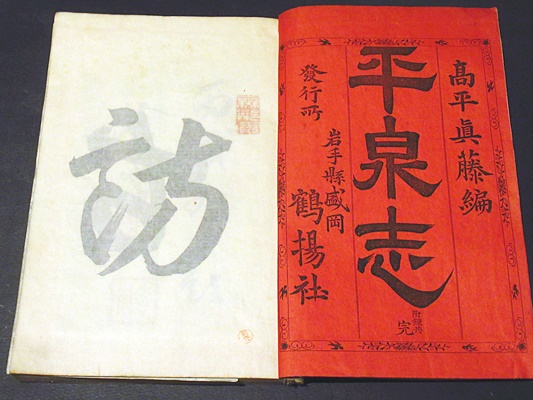 高平眞藤編
平泉志
附録共
完
發行所
岩手縣盛岡
鶴揚社
訪